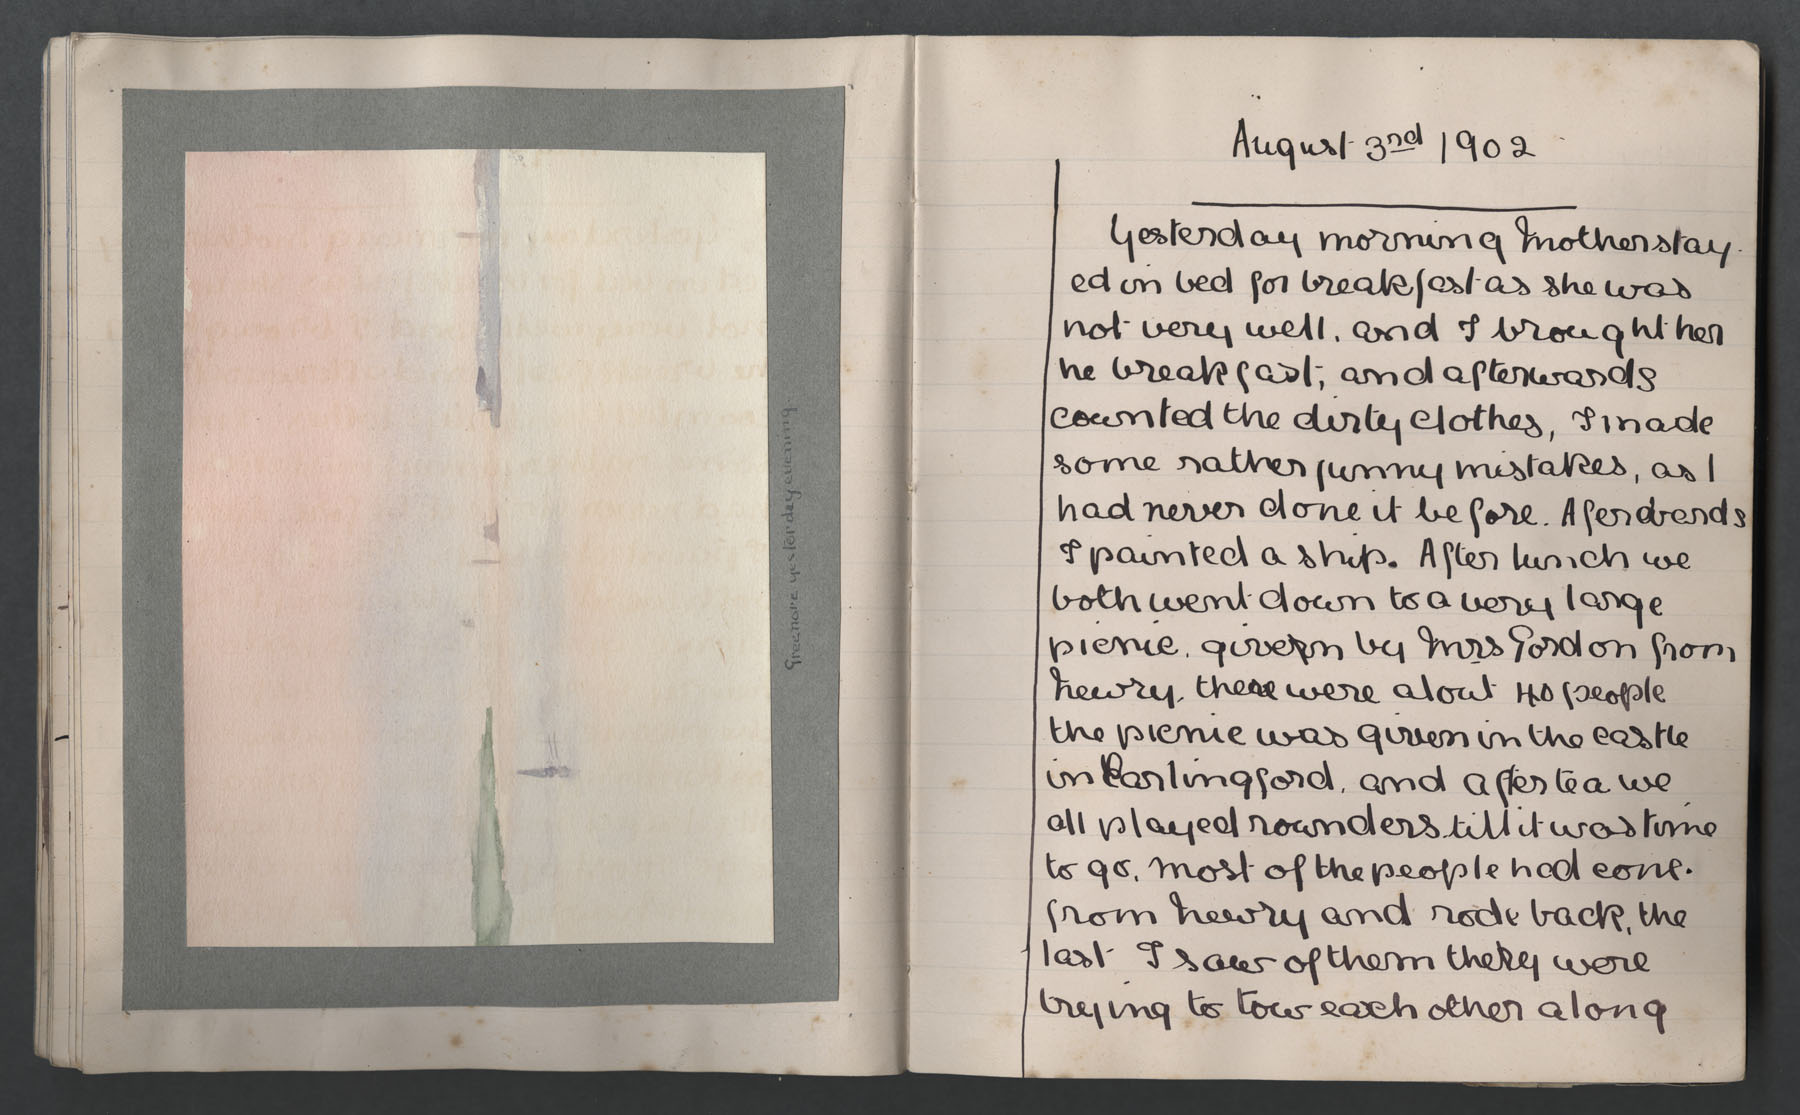 Greenore yesterday evening.
August 3rd 1902
Yesterday morning Mother stay-
ed in bed for breakfast as she was
not very well, and I brought her
he breakfast; and afterwards
counted the dirty clothes, I made
some rather funny mistakes, as I
had never done it before. Aferdverds
I painted a ship. After lunch we
both went down to a very large
picnic, given by Mrs Gordon from
Newry, there were about 40 people
the picnic was given in the castle
in Carlingford, and after tea we
all played rounders till it was time
to go, most of the people had come
from Newry and rode back, the
last I saw of them they were
trying to tow each other along